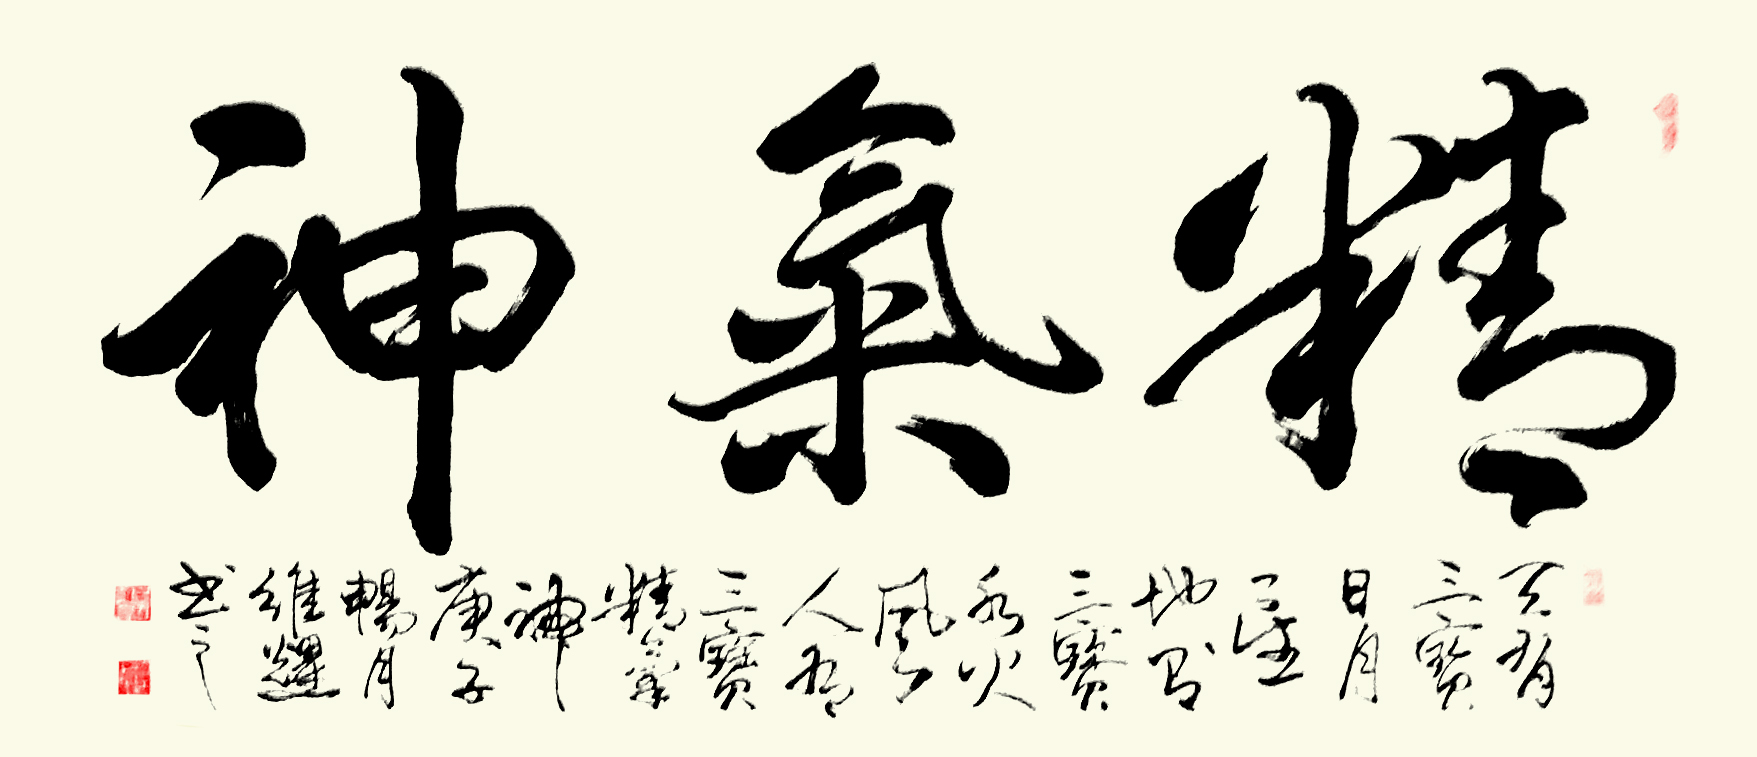 精氣神
天有三寶日月星地有三寶水火風人有三寶精氣神庚子暢月維耀書之